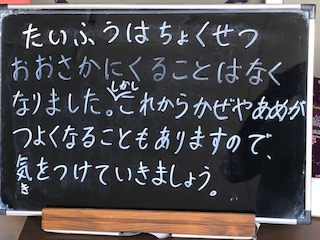 たいふうはちょくせつ
おおさかにくることはなく
なりました。しかしこれからかぜやあめが
つよくなることもありますので、
気をつけていきましょう。
き